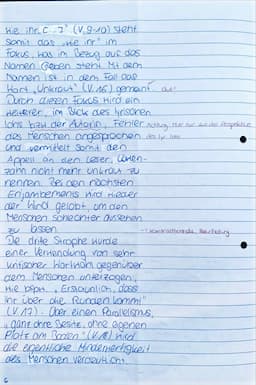 wie ihr [...]" (V. 9-10) steht
somit das „wie ihr" im
Fokus, was im Bezug auf das
Namen geben steht. Mit dem
Namen ist in dem Fall das
Wort „Unkraut" (V. 16) gemeint. Gut!
Durch diesen Fokus wird ein
weiterer, im Blick des lyrischen
Ichs bzw. der Autorin, Fehler
des Menschen angesprochen
und vermittelt somit den
Appell an den Leser, Löwen-
zahn nicht mehr Unkraut zu
nennen. Bei den nächsten
Enjambements wird wieder
der Wind gelobt, um den
Menschen schlechter aussehen
zu lassen.
Die dritte Strophe wurde
einer Verwendung von sehr
kritischer Wortwahl gegenüber
dem Menschen unterzogen,
wie bspw. „Erstaunlich, dass
ihr über die Runden kommt"
(V. 17). Über einen Parallelismus,
„ganz ohne Besitz, ohne eigenen
Platz am Boden" (V. 18) wird
die eigentliche Minderwertigkeit
des Menschen verdeutlicht.
6